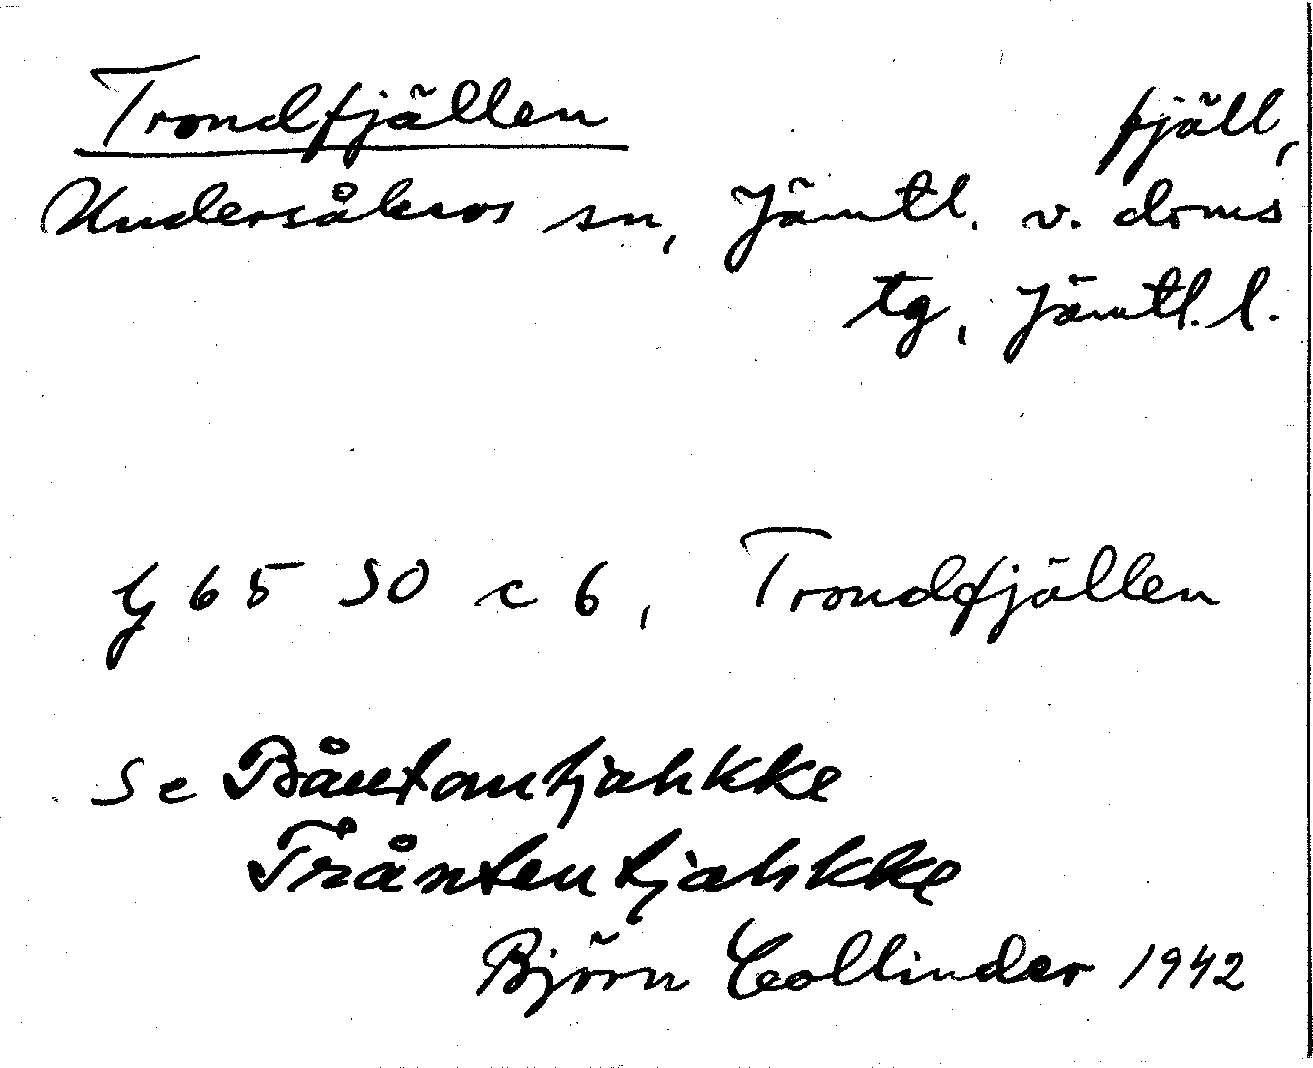 Trondfjällen fjäll,
Undersåkers sn, Jämtl. v. doms
tg, Jämtl. l.
G 65 SO c 6, Trondfjällen
Se Båuton tjahkke
Trånten tjahkke
Björn Collinder 1942